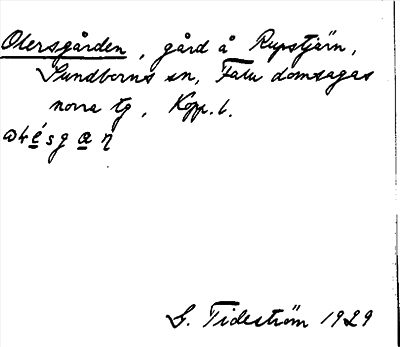 Olersgården, gård å Rupstjärn,
Sundborns sn, Falu domsagas
norra tg, Kopp. l.
G. Tideström 1929